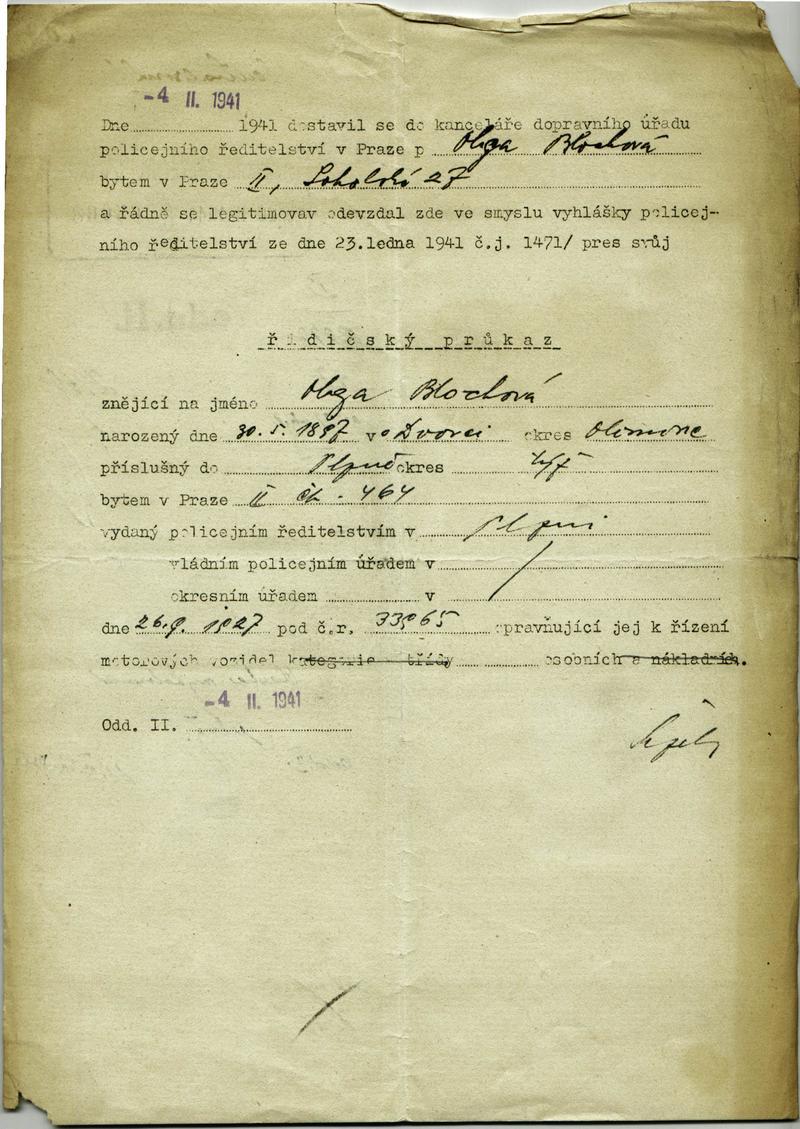 -4 II. 1941
Dne 1941 dostavil se do kanceláře dopravního úřadu
policejního ředitelství v Praze p Olga Blochová
bytem v Praze II, Sokolská 27
a řádně se legitimovav odevzdal zde ve smyslu vyhlášky policej-
ního ředitelství ze dne 23.ledna 1941 č.j. 1471/ pres svůj
řidičský průkaz
znějící na jméno Olga Blochová
narozený dne 30.5.1897 v Dvorci okres Olomouc
příslušný do Plzně okres
bytem v Praze II čp. 464
vydaný policejním ředitelstvím v Plzni
vládním policejním úřadem v
okresním úřadem v
dne 26.9. 1927 pod č.r. 33065 opravňující jej k řízení
motorových vozidel kategorie - třídy osobních a nákladních.
-4 II. 1941
Odd. II.